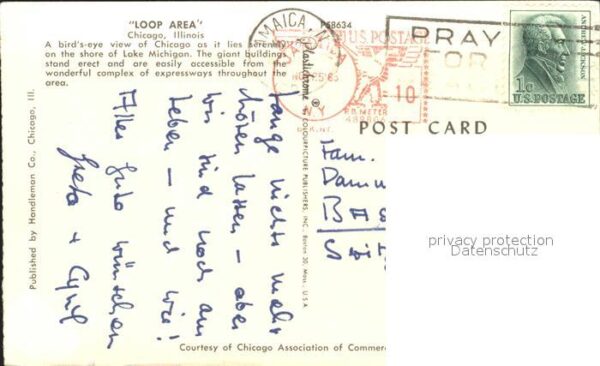 "LOOP AREA"
Chicago, Illinois
A bird's-eye view of Chicago as it lies serenely
on the shore of Lake Michigan. The giant buildings
stand erect and are easily accessible from the
wonderful complex of expressways throughout the
area.
Published by Handleman Co., Chicago, Ill.
Lange nichts mehr
hören lassen - aber
wir sind noch am
Leben - und wie!
Alles Gute wünschen
Greta + Cyril
Courtesy of Chicago Association of Commer
P58634
Plastichrome ® by COLOURPICTURE PUBLISHERS, INC., Boston 30, Mass., U.S.A.
JAMAICA, N.Y.
U.S. POSTAGE
10
P.B. METER
PRAY
FOR
ANDREW JACKSON
1c
U.S. POSTAGE
POST CARD
Fam.
B II
privacy protection
Datenschutz